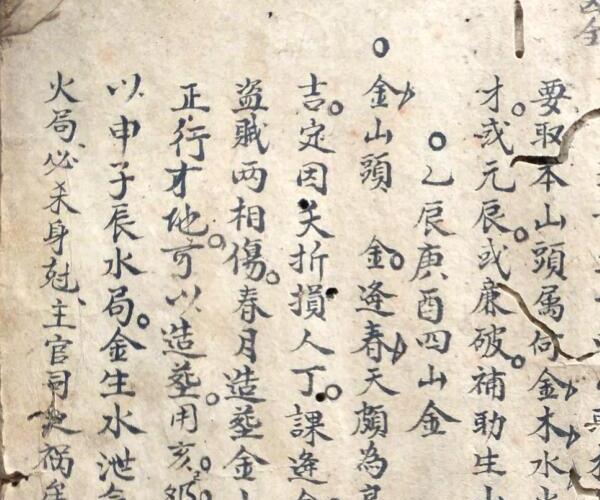 要取本山頭属何金木水
才或元辰或廉破補助生
乙辰庚酉四山金
金山頭　金逢春天頗為
吉定因夭折損人丁課逢
盗賊兩相傷春月造塟金
正行才他可以造塟用亥
以申子辰水局金生水泄
火局必杀身尅主官司